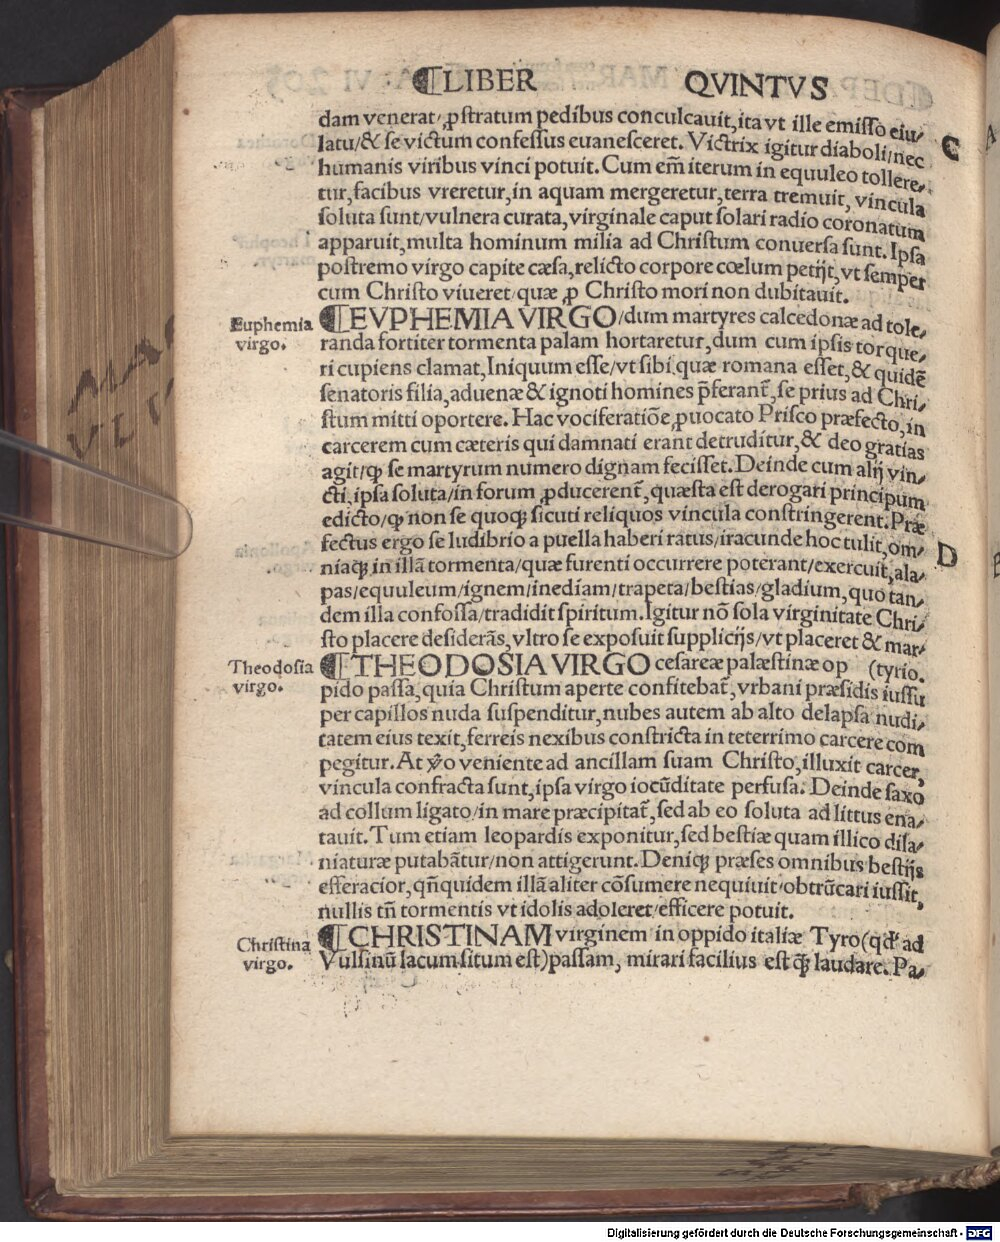 ¶LIBER QVINTVS
dam venerat/ ꝓstratum pedibus conculcauit, ita vt ille emisso eiu/
latu/& se victum confessus euanesceret. Victrix igitur diaboli/nec
C
humanis viribus vinci potuit. Cum em̄ iterum in equuleo tollere/
tur, facibus vreretur, in aquam mergeretur, terra tremuit, vincula
soluta sunt/vulnera curata, virginale caput solari radio coronatum
apparuit, multa hominum milia ad Christum conuersa sunt. Ipsa
postremo virgo capite cæsa, relicto corpore cœlum petijt, vt semper
cum Christo viueret/quæ ꝓ Christo mori non dubitauit.
Euphemia
virgo.
¶EVPHEMIA VIRGO/dum martyres calcedonæ ad tole/
randa fortiter tormenta palam hortaretur, dum cum ipsis torque/
ri cupiens clamat, Iniquum esse/vt sibi quæ romana esset, & quidē
senatoris filia, aduenæ & ignoti homines p̄ferant̄, se prius ad Chri/
stum mitti oportere. Hac vociferatiōe ꝓuocato Prisco præfecto, in
carcerem cum cæteris qui damnati erant detruditur, & deo gratias
agit/ꝙ se martyrum numero dignam fecisset. Deinde cum alij vin/
cti, ipsa soluta/in forum ꝓducerent̄, quæsta est derogari principum
edicto/ꝙ non se quoqꝫ sicuti reliquos vincula constringerent. Præ
fectus ergo se ludibrio a puella haberi ratus/iracunde hoc tulit, om/
D
niaqꝫ in illā tormenta/quæ furenti occurrere poterant/exercuit, ala/
pas/equuleum/ignem/inediam/trapeta/bestias/gladium, quo tan/
dem illa confossa/tradidit spiritum. Igitur nō sola virginitate Chri/
sto placere desiderās, vltro se exposuit supplicijs/vt placeret & mar/
Theodosia
virgo.
¶THEODOSIA VIRGO cesareæ palæstinæ op (tyrio.
pido passa, quia Christum aperte confitebat̄, vrbani præsidis iussu
per capillos nuda suspenditur, nubes autem ab alto delapsa nudi/
tatem eius texit, ferreis nexibus constricta in teterrimo carcere com
pegitur. At ꝟo veniente ad ancillam suam Christo, illuxit carcer,
vincula confracta sunt, ipsa virgo iocūditate perfusa. Deinde saxo
ad collum ligato/in mare præcipitat̄, sed ab eo soluta ad littus ena/
tauit. Tum etiam leopardis exponitur, sed bestiæ quam illico disla/
niaturæ putabātur/non attigerunt. Deniqꝫ præses omnibus bestijs
efferacior, qn̄quidem illā aliter cōsumere nequiuit/obtrūcari iussit,
nullis tn̄ tormentis vt idolis adoleret/efficere potuit.
Christina
virgo.
¶CHRISTINAM virginem in oppido italiæ Tyro(qd' ad
Vulsinū lacum situm est)passam, mirari facilius est q̄ꝫ laudare. Pa/
Digitalisierung gefördert durch die Deutsche Forschungsgemeinschaft - DFG